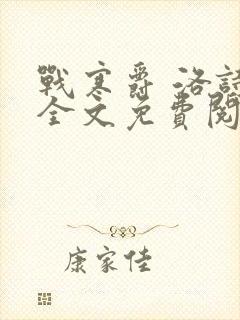 戰寒爵 洛詩
全文免費閱
康家佳